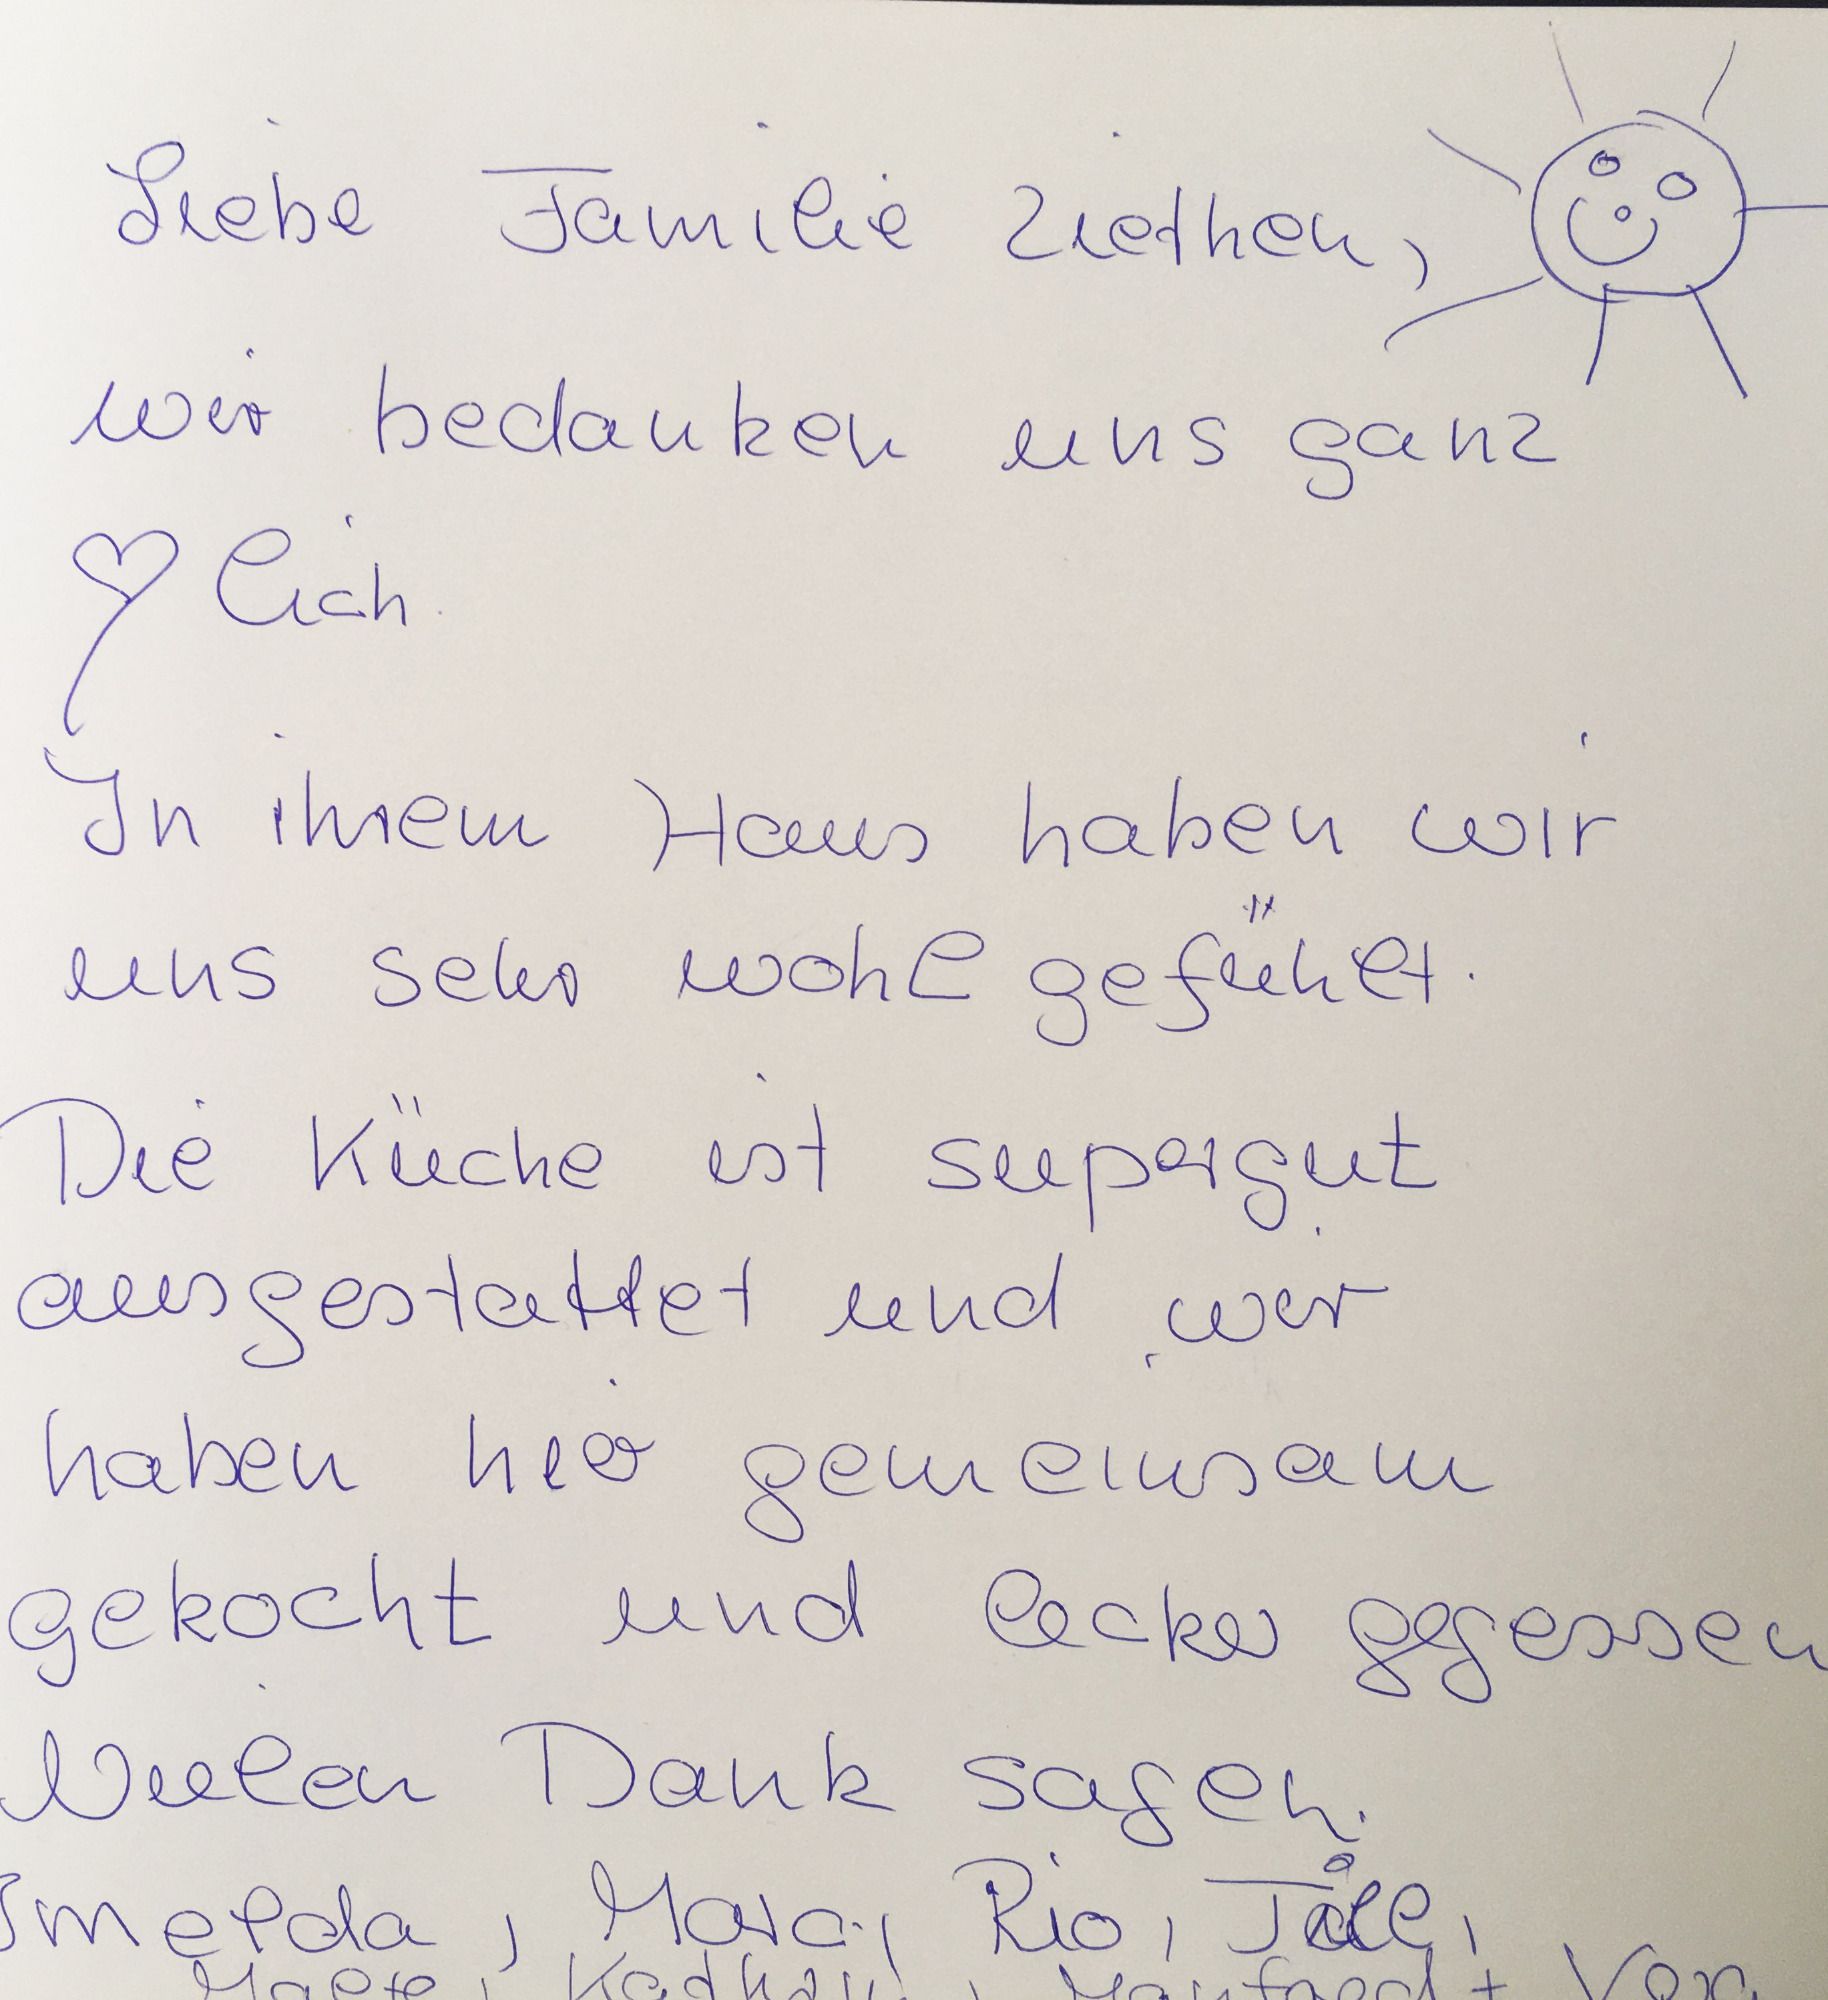 Liebe Familie Ziethen,
wir bedanken uns ganz
♡lich.
In ihrem Haus haben wir
uns sehr wohl gefühlt.
Die Küche ist supergut
ausgestattet und wir
haben hier gemeinsam
gekocht und lecker gegessen
Vielen Dank sagen.
Imelda, Marc, Rio, Till,
Malte, Manfred + Vera